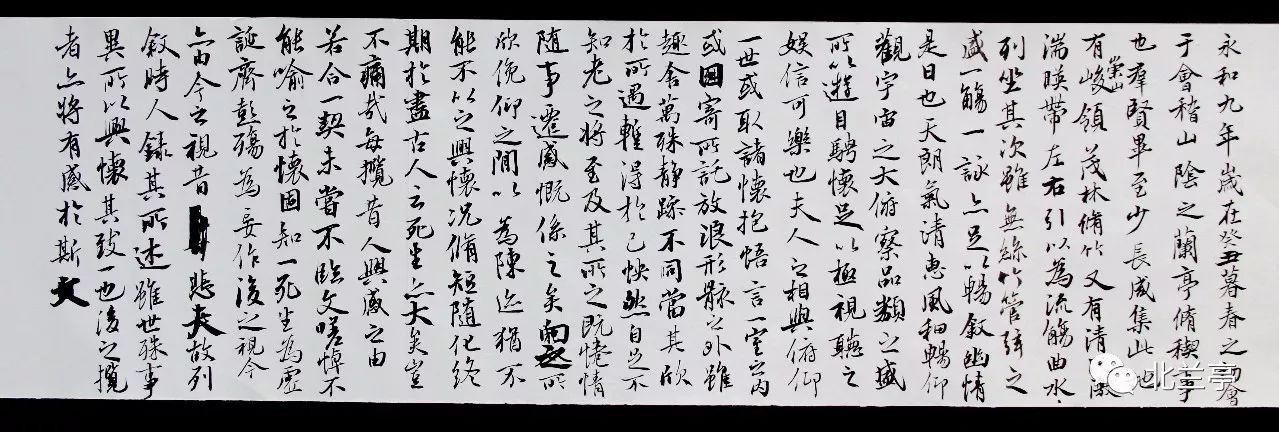 永和九年歲在癸丑暮春之初會
于會稽山陰之蘭亭脩稧事
也羣賢畢至少長咸集此地
有崇山峻領茂林脩竹又有清
湍暎帶左右引以為流觴曲水
列坐其次雖無絲竹管弦之
盛一觴一詠亦足以暢敘幽情
是日也天朗氣清惠風和暢仰
觀宇宙之大俯察品類之盛
所以遊目騁懷足以極視聽之
娛信可樂也夫人之相與俯仰
一世或取諸懷抱悟言一室之內
或因寄所託放浪形骸之外雖
趣舍萬殊靜躁不同當其欣
於所遇輙得於己怏然自足不
知老之將至及其所之既惓情
隨事遷感慨係之矣向之所
欣俛仰之間以為陳迹猶不
能不以之興懷況脩短隨化終
期於盡古人云死生亦大矣豈
不痛哉每攬昔人興感之由
若合一契未嘗不臨文嗟悼不
能喻之於懷固知一死生為虛
誕齊彭殤為妄作後之視今
亦由今之視昔悲夫故列
敘時人錄其所述雖世殊事
異所以興懷其致一也後之攬
者亦將有感於斯文
北兰亭